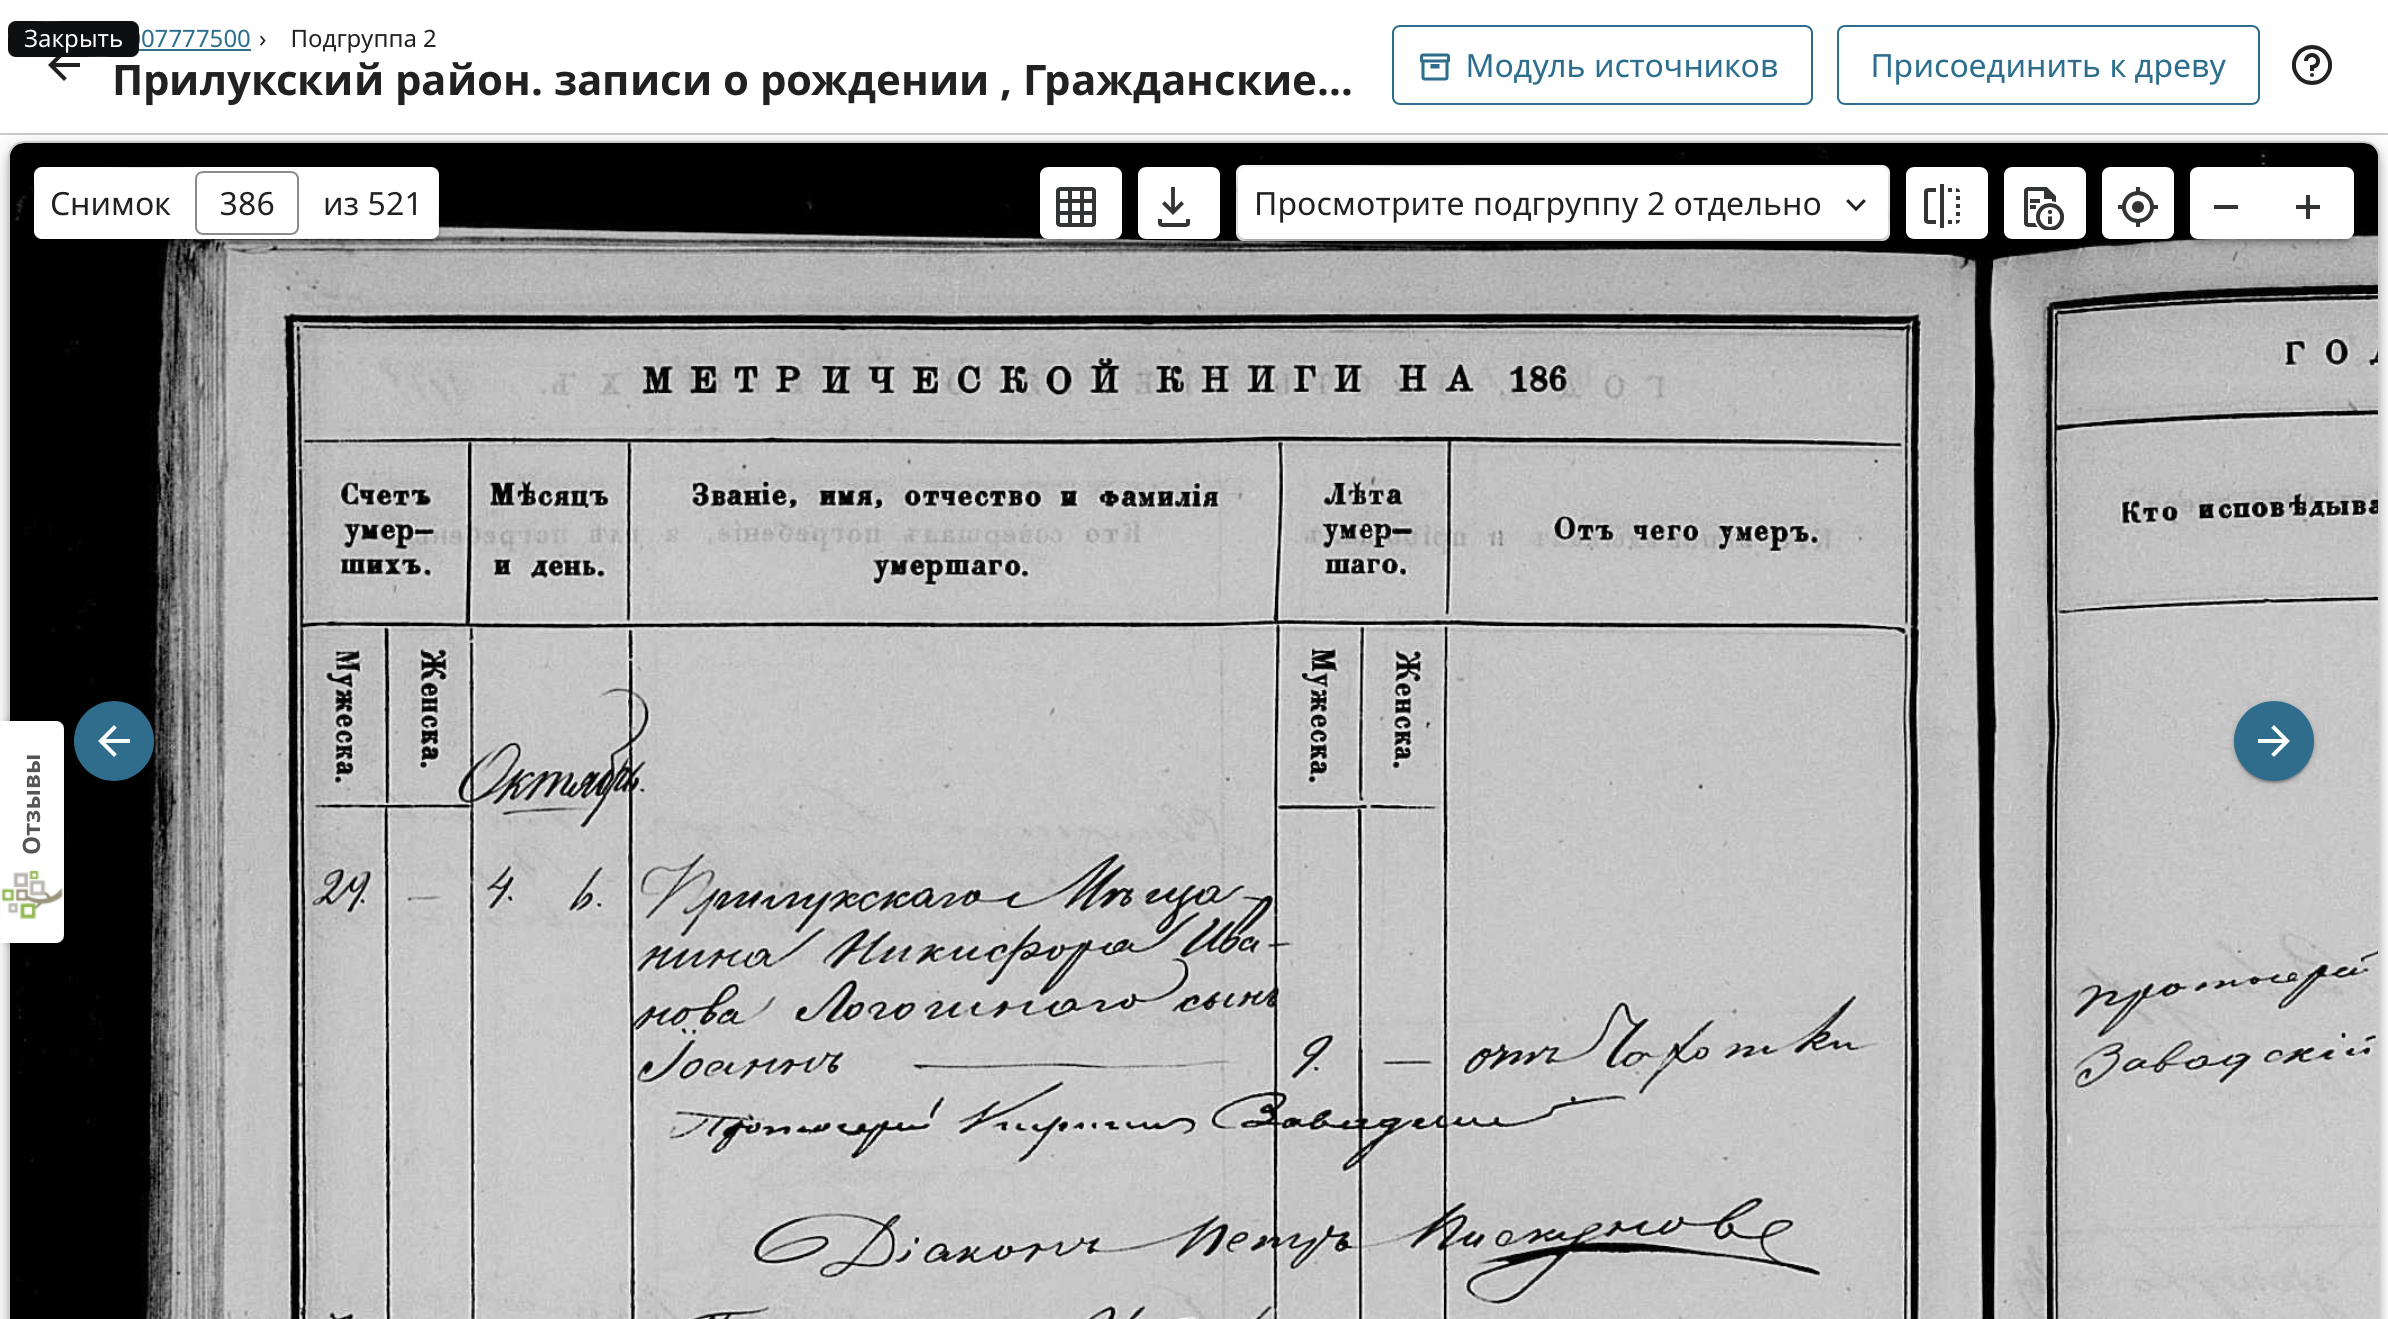 Закрыть
07777500 › Подгруппа 2
Прилукский район. записи о рождении , Гражданские...
Модуль источников
Присоединить к древу
Снимок 386 из 521
Просмотрите подгруппу 2 отдельно
Отзывы
МЕТРИЧЕСКОЙ КНИГИ НА 186
Счетъ умер—шихъ.
Мѣсяцъ и день.
Званіе, имя, отчество и фамилія умершаго.
Лѣта умер—шаго.
Отъ чего умеръ.
ГО
Кто исповѣдыва
Мужеска.
Женска.
Мужеска.
Женска.
Октябрь.
29. — 4. 6. Прилукскаго Мѣща-
нина Никифора Ива-
нова сынъ
Іоаннъ — 9. — отъ Чахотки
Протоіерей Кириллъ Завадскій
Діаконъ Петръ Пискуновъ
протоіерей
Завадскій